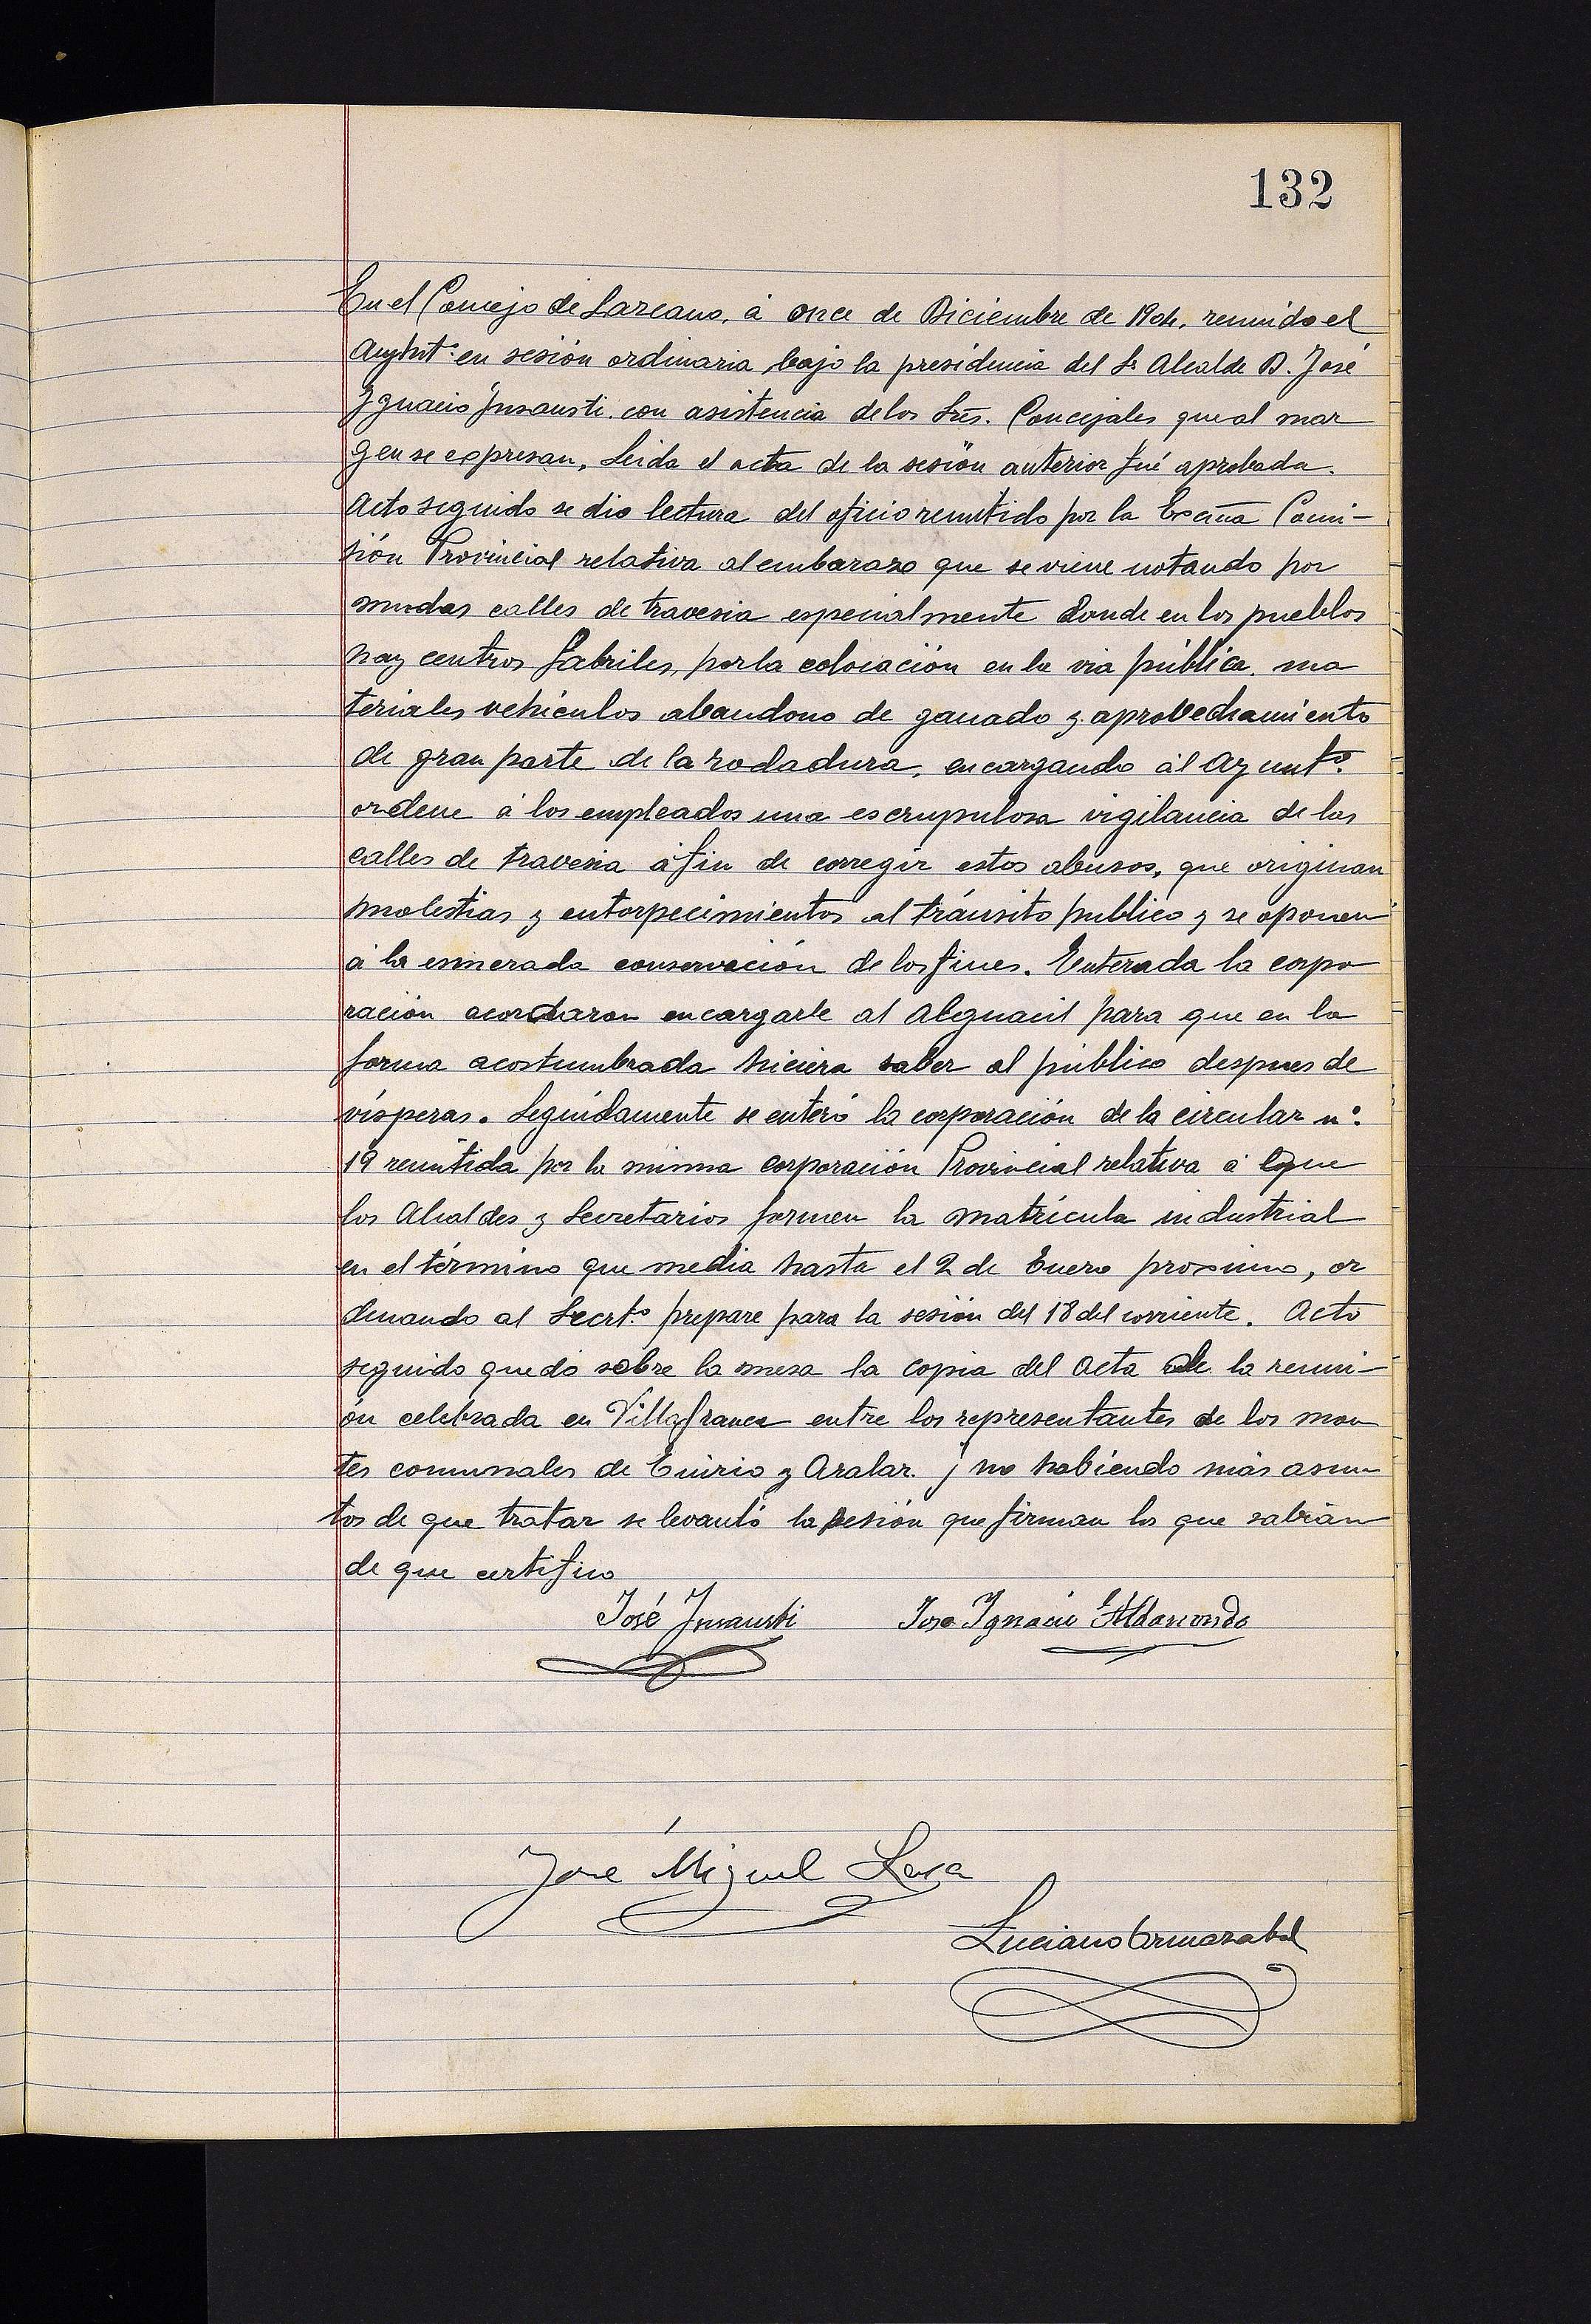 132
En el Concejo de Lazcano, á once de Diciembre de 1904, reunido el
Ayunt.º en sesión ordinaria bajo la presidencia del Sr Alcalde D. José
Ygnacio Insausti con asistencia de los Srēs. Concejales que al mar
gen se expresan, Leida el acta de la sesión anterior fué aprobada.
Acto seguido se dio lectura del oficio remitido por la Excma Comi-
sión Provincial relativa al embarazo que se viene notando por
muchas calles de travesia especialmente donde en los pueblos
hay centros fabriles, por la colocación en la via pública, ma
teriales vehículos abandono de ganado y aprobechamiento
de gran parte de la rodadura, encargando al Ayuntº.
ordene á los empleados una escrupulosa vigilancia de las
calles de travesia á fin de corregir estos abusos, que originan
molestias y entorpecimientos al tránsito publico y se oponen
á la esmerada conservación de los fines. Enterada la corpo
ración acordaron encargarle al Alguacil para que en la
forma acostumbrada hiciera saber al público despues de
vísperas. Seguidamente se enteró la corporación de la circular nº.
19 remitida por la misma corporación Provincial relativa á que
los Alcaldes y Secretarios formen la matrícula industrial
en el término que media hasta el 2 de Enero proximo, or
denando al Secrt.º prepare para la sesión del 18 del corriente. Acto
seguido quedó sobre la mesa la copia del Acta de la reuni-
ón celebrada en Villafranca entre los representantes de los mon
tes comunales de Enirio y Aralar. y no habiendo más asun
tos de que tratar se levantó la sesión que firman los que sabian
de que certifico
José Insausti José Ignacio Aldasoro
José Miguel Lasa
Luciano Ormazabal